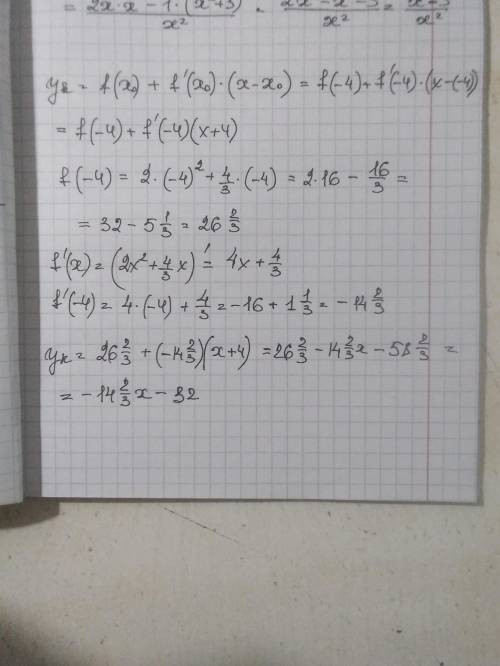 = (2x·x − 1·(x+3))/x² = (2x−x−3)/x² = (x+3)/x²
yк = f(x₀) + f'(x₀)·(x−x₀) = f(−4) + f'(−4)·(x−(−4))
= f(−4) + f'(−4)(x+4)
f(−4) = 2·(−4)² + 4/3·(−4) = 2·16 − 16/3 =
= 32 − 5 1/3 = 26 2/3
f'(x) = (2x² + 4/3 x)' = 4x + 4/3
f'(−4) = 4·(−4) + 4/3 = −16 + 1 1/3 = −14 2/3
yк = 26 2/3 + (−14 2/3)(x+4) = 26 2/3 − 14 2/3 x − 58 2/3 =
= −14 2/3 x − 32